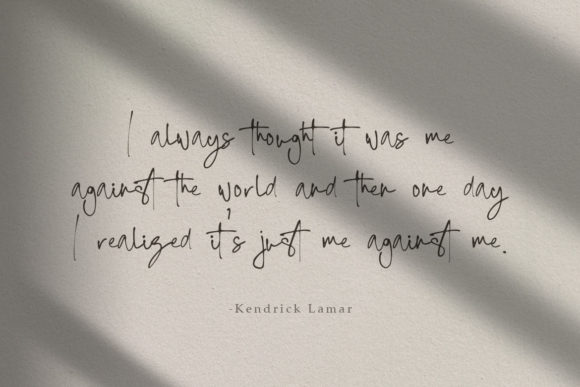 I always thought it was me
against the world and then one day
I realized it's just me against me.
-Kendrick Lamar